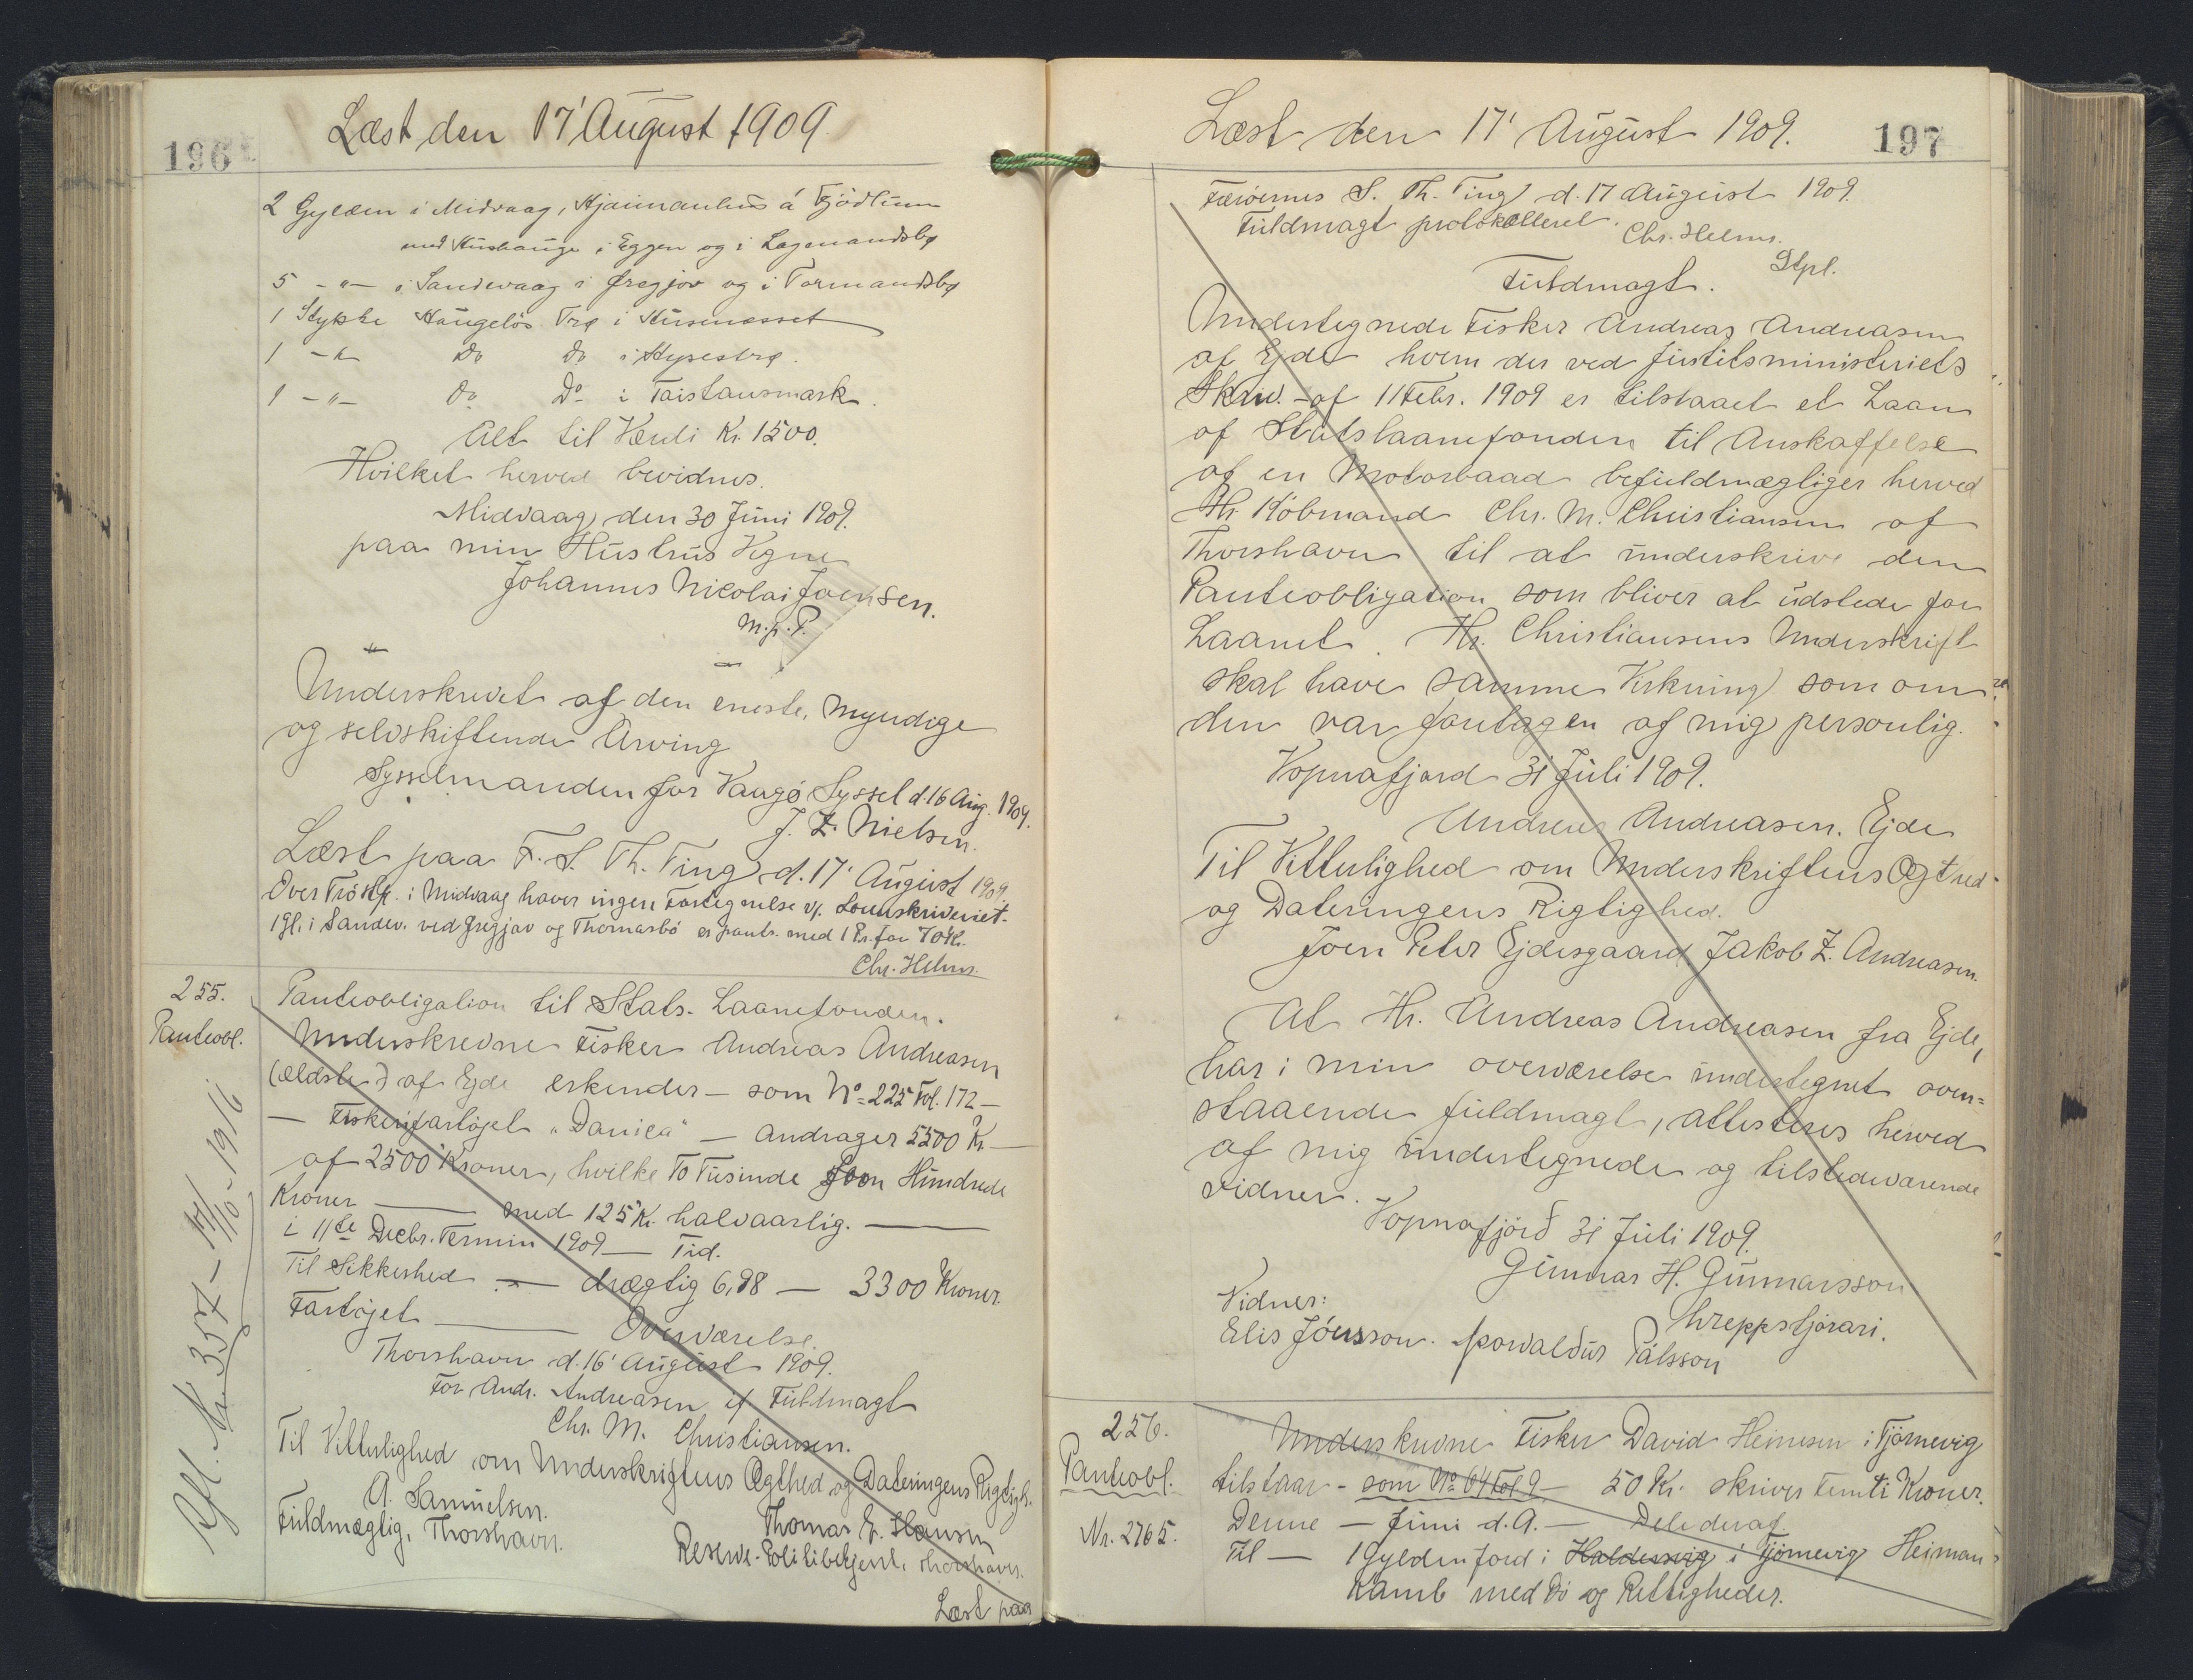 196
Læst den 17' August 1909.
2 Gylden i Midvaag, Hjaimanhus á Fjødlum
med Hushauge i Eggen og i Lagmandsbø
5 -"- i Sandevaag i Gregjov og i Tormandsbø
1 Stykke Haugeløs Trø i Husenæsset
1 -"- Do Do i
1 -"- Do Do i Taistansmark.
Alt til Værdi Kr. 1500.
Hvilket herved bevidnes.
Midvaag, den 30 Juni 1909.
paa min Hustrus Vegne
Johannes Nicolai Joensen.
M.p.P.
Underskrevet af den eneste, myndige
og selvskiftende Arving
Sysselmanden for Vaagø Syssel d. 16 Aug. 1909.
J. Z. Nielsen.
Læst paa F. S. Th. Ting d. 17' August 1909
Over i Midvaag haves ingen Fortegnelse v/. Sorenskriveriet.
1 gl. i Sandev. ved Gregjav og Thomarsbö er pants. med 1 Pr. for 70 Kr.
Chr. Helms.
255.
Panteobl.
Rfl. Nr. 357 - 17/10 - 1916
Panteobligation til Stats-Laanefonden.
Underskrevne Fisker Andreas Andreasen
(ældste) af Ejde erkender - som No 225 Fol. 172 -
- Fiskerifartøjet "Danica" - Andrager 5500 Kr. -
af 2500 Kroner, hvilke To Tusinde Fem Hundrede
Kroner — med 125 Kr. halvaarlig. —
i 11te Decbr. Termin 1909 — Tid.
Til Sikkerhed — drægtig 6,98 — 3300 Kroner.
Fartøjet — Overværelse.
Thorshavn d. 16' August 1909.
For Andr. Andreasen if Fuldmagt
Chr. M. Christiansen.
Til Vitterlighed om Underskriftens Ægthed og Dateringens Rigtigh.
A. Samuelsen. Thomas E. Hansen
Fuldmægtig, Thorshavn. Reserve-Politibetjent, Thorshavn.
Læst paa
Læst den 17' August 1909.
197
Færøernes S. Th. Ting d. 17 August 1909.
Fuldmagt protokolleret.
Chr. Helms.
Stpl.
Fuldmagt.
Undertegnede Fisker Andreas Andreasen
af Ejde hvem der ved Justitsministeriets
Skriv. af 11 Febr. 1909 er tilstaaet et Laan
af Statslaanefonden til Anskaffelse
af en Motorbaad befuldmægtiger herved
Hr. Købmand Chr. M. Christiansen af
Thorshavn til at underskrive den
Panteobligation som bliver at udstede for
Laanet. Hr. Christiansens Underskrift
skal have samme Virkning som om
den var foretagen af mig personlig.
Vopnafjord 31 Juli 1909.
Andreas Andreasen. Ejde
Til Vitterlighed om Underskriftens Ægthed
og Dateringens Rigtighed.
Joen Peter Ejdesgaard Jakob Z. Andreasen.
At Hr. Andreas Andreasen fra Ejde,
har i min overværelse undertegnet oven=
staaende fuldmagt, attesteres herved
af mig undertegnede og tilstedeværende
vidner.
Vopnafjörð 31 Juli 1909.
Gunnar H. Gunnarsson
hreppstjórari.
Vidner:
Elis Jónsson. Þorvaldur Pálsson
256.
Panteobl.
Nr. 2765.
Underskrevne Fisker David Heinesen i Tjörnevig
tilstaar - som No 64 Fol 9 - 50 Kr. skriver Femti Kroner.
Denne — Juni d. A. — Dele deraf
Til — 1 Gylden Jord i Haldersvig i Tjörnevig Heiman
Kamb med Do og Rettigheder.